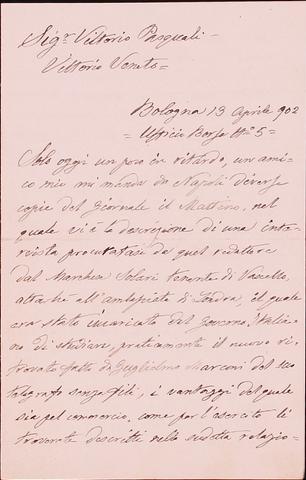 Sigr. Vittorio Pasquali -
Vittorio Veneto =
Bologna 13 Aprile 902
= Ufficio Borsa No 5 =
Solo oggi un poco in ritardo, un ami=
co mio mi manda da Napoli diverse
copie del giornale il Mattino, nel
quale vi è la descrizione di una inter=
vista procuratasi da quel redattore
dal Marchese Solari tenente di Vascello,
attachè all'ambasciata di Londra, il quale
era stato incaricato dal Governo Italia=
no di studiare praticamente il nuovo ri=
trovato fatto da Guglielmo Marconi del suo
telegrafo senza fili, i vantaggi del quale
sia pel commercio, come per l'esercito li
troverete descritti nella sudetta relazio=